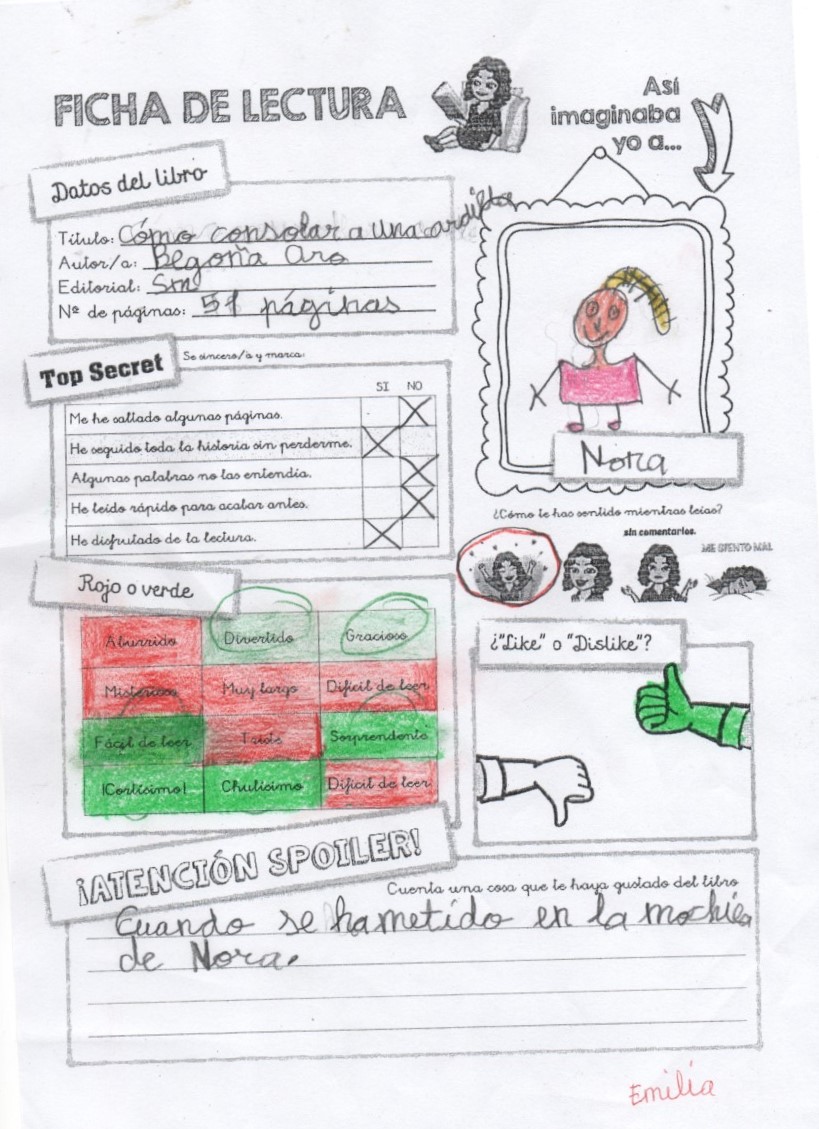 FICHA DE LECTURA
Así
imaginaba
yo a...
Datos del libro
Título: Cómo consolar a una ardilla
Autor/a: Begoña Oro
Editorial: Sm
Nº de páginas: 51 páginas
Top Secret
Se sincero/a y marca:
SI NO
Me he saltado algunas páginas. X
He seguido toda la historia sin perderme. X
Algunas palabras no las entendía. X
He leído rápido para acabar antes. X
He disfrutado de la lectura. X
Nora
¿Cómo te has sentido mientras leías?
sin comentarios.
ME SIENTO MAL
Rojo o verde
Aburrido Divertido Gracioso
Misterioso Muy largo Difícil de leer
Fácil de leer Triste Sorprendente
¡Cortísimo! Chulísimo Difícil de leer
¿"Like" o "Dislike"?
¡ATENCIÓN SPOILER!
Cuenta una cosa que te haya gustado del libro
Cuando se ha metido en la mochila
de Nora.
Emilia